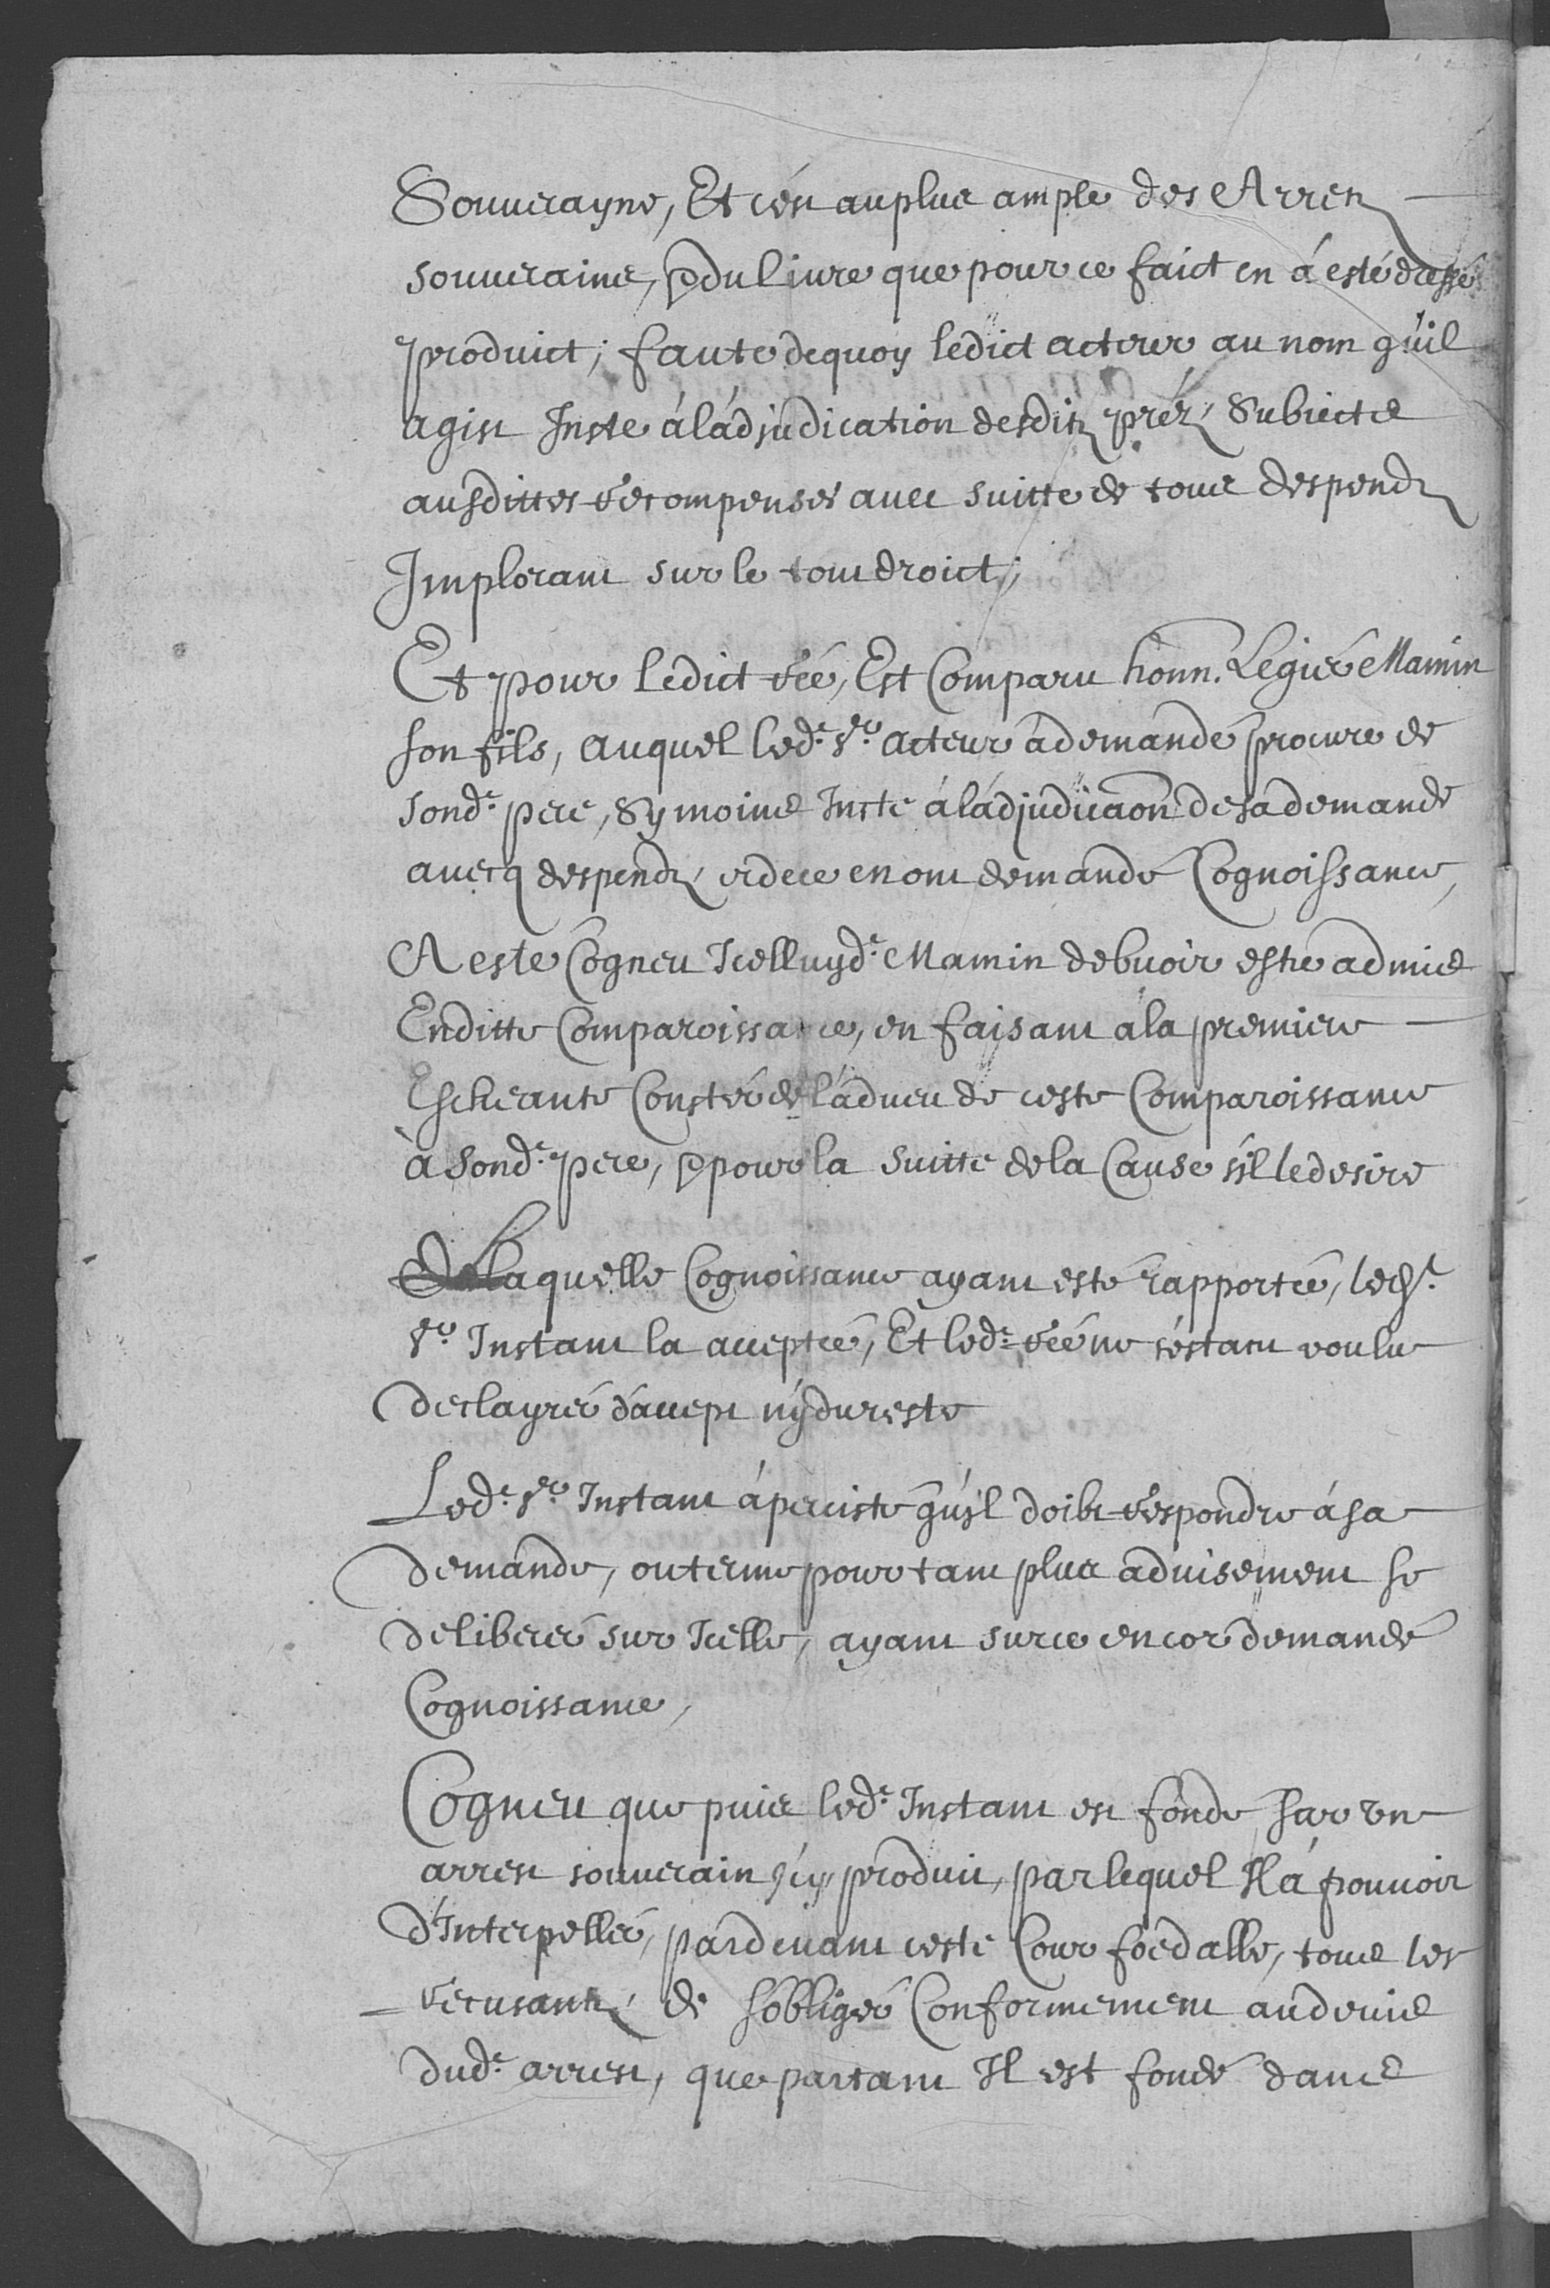 Souverayne, Et cést au plus ample des Arretz
souverains, & du livre que pour ce faict en á esté dressé
produict; faute dequoy ledict acteur au nom qu'il
agist Inste á ládjudication desditz préz Subiects
ausdittes recompenses avec suitte de tous despendz
Implorant sur le tout droict;
Et pour ledict rée, Est Comparu honn. Legier Mamin
son fils, auquel led.t S.r acteur à demandé procure de
sond.t pere, Sy moins Inste á ládjudicaon de sa demande
avecq despendz, et de ce en ont demandé Cognoissance,
A esté Cogneu Icelluyd.t Mamin debvoir estre admis
Enditte Comparoissance, en faisant à la premiere
Escheante Conster de l'adveu de ceste Comparoissance
à sond.t pere, & pour la suitte de la Cause s'il le desire
laquelle Cognoissance ayant esté rapportée, led.t
S.r Instant la acceptée, Et led.t rée ne s'estant voulu
declayrer d'accept ny du reste
Led.t S.r Instant á perciste qu'il doibt respondre á sa
demande, ou terme pour tant plus advisement se
deliberer sur Icelle, ayant sur ce encor demandé
Cognoissance,
Cogneu que puis led.t Instant est fondé sur un
arrest souverain icy produit, par lequel Il á pouvoir
d'Interpeller, pardevant ceste Cour foedalle, tous les
recusantz de s'obliger Conformement au devis
dud.t arrest, que partant Il est fondé dans